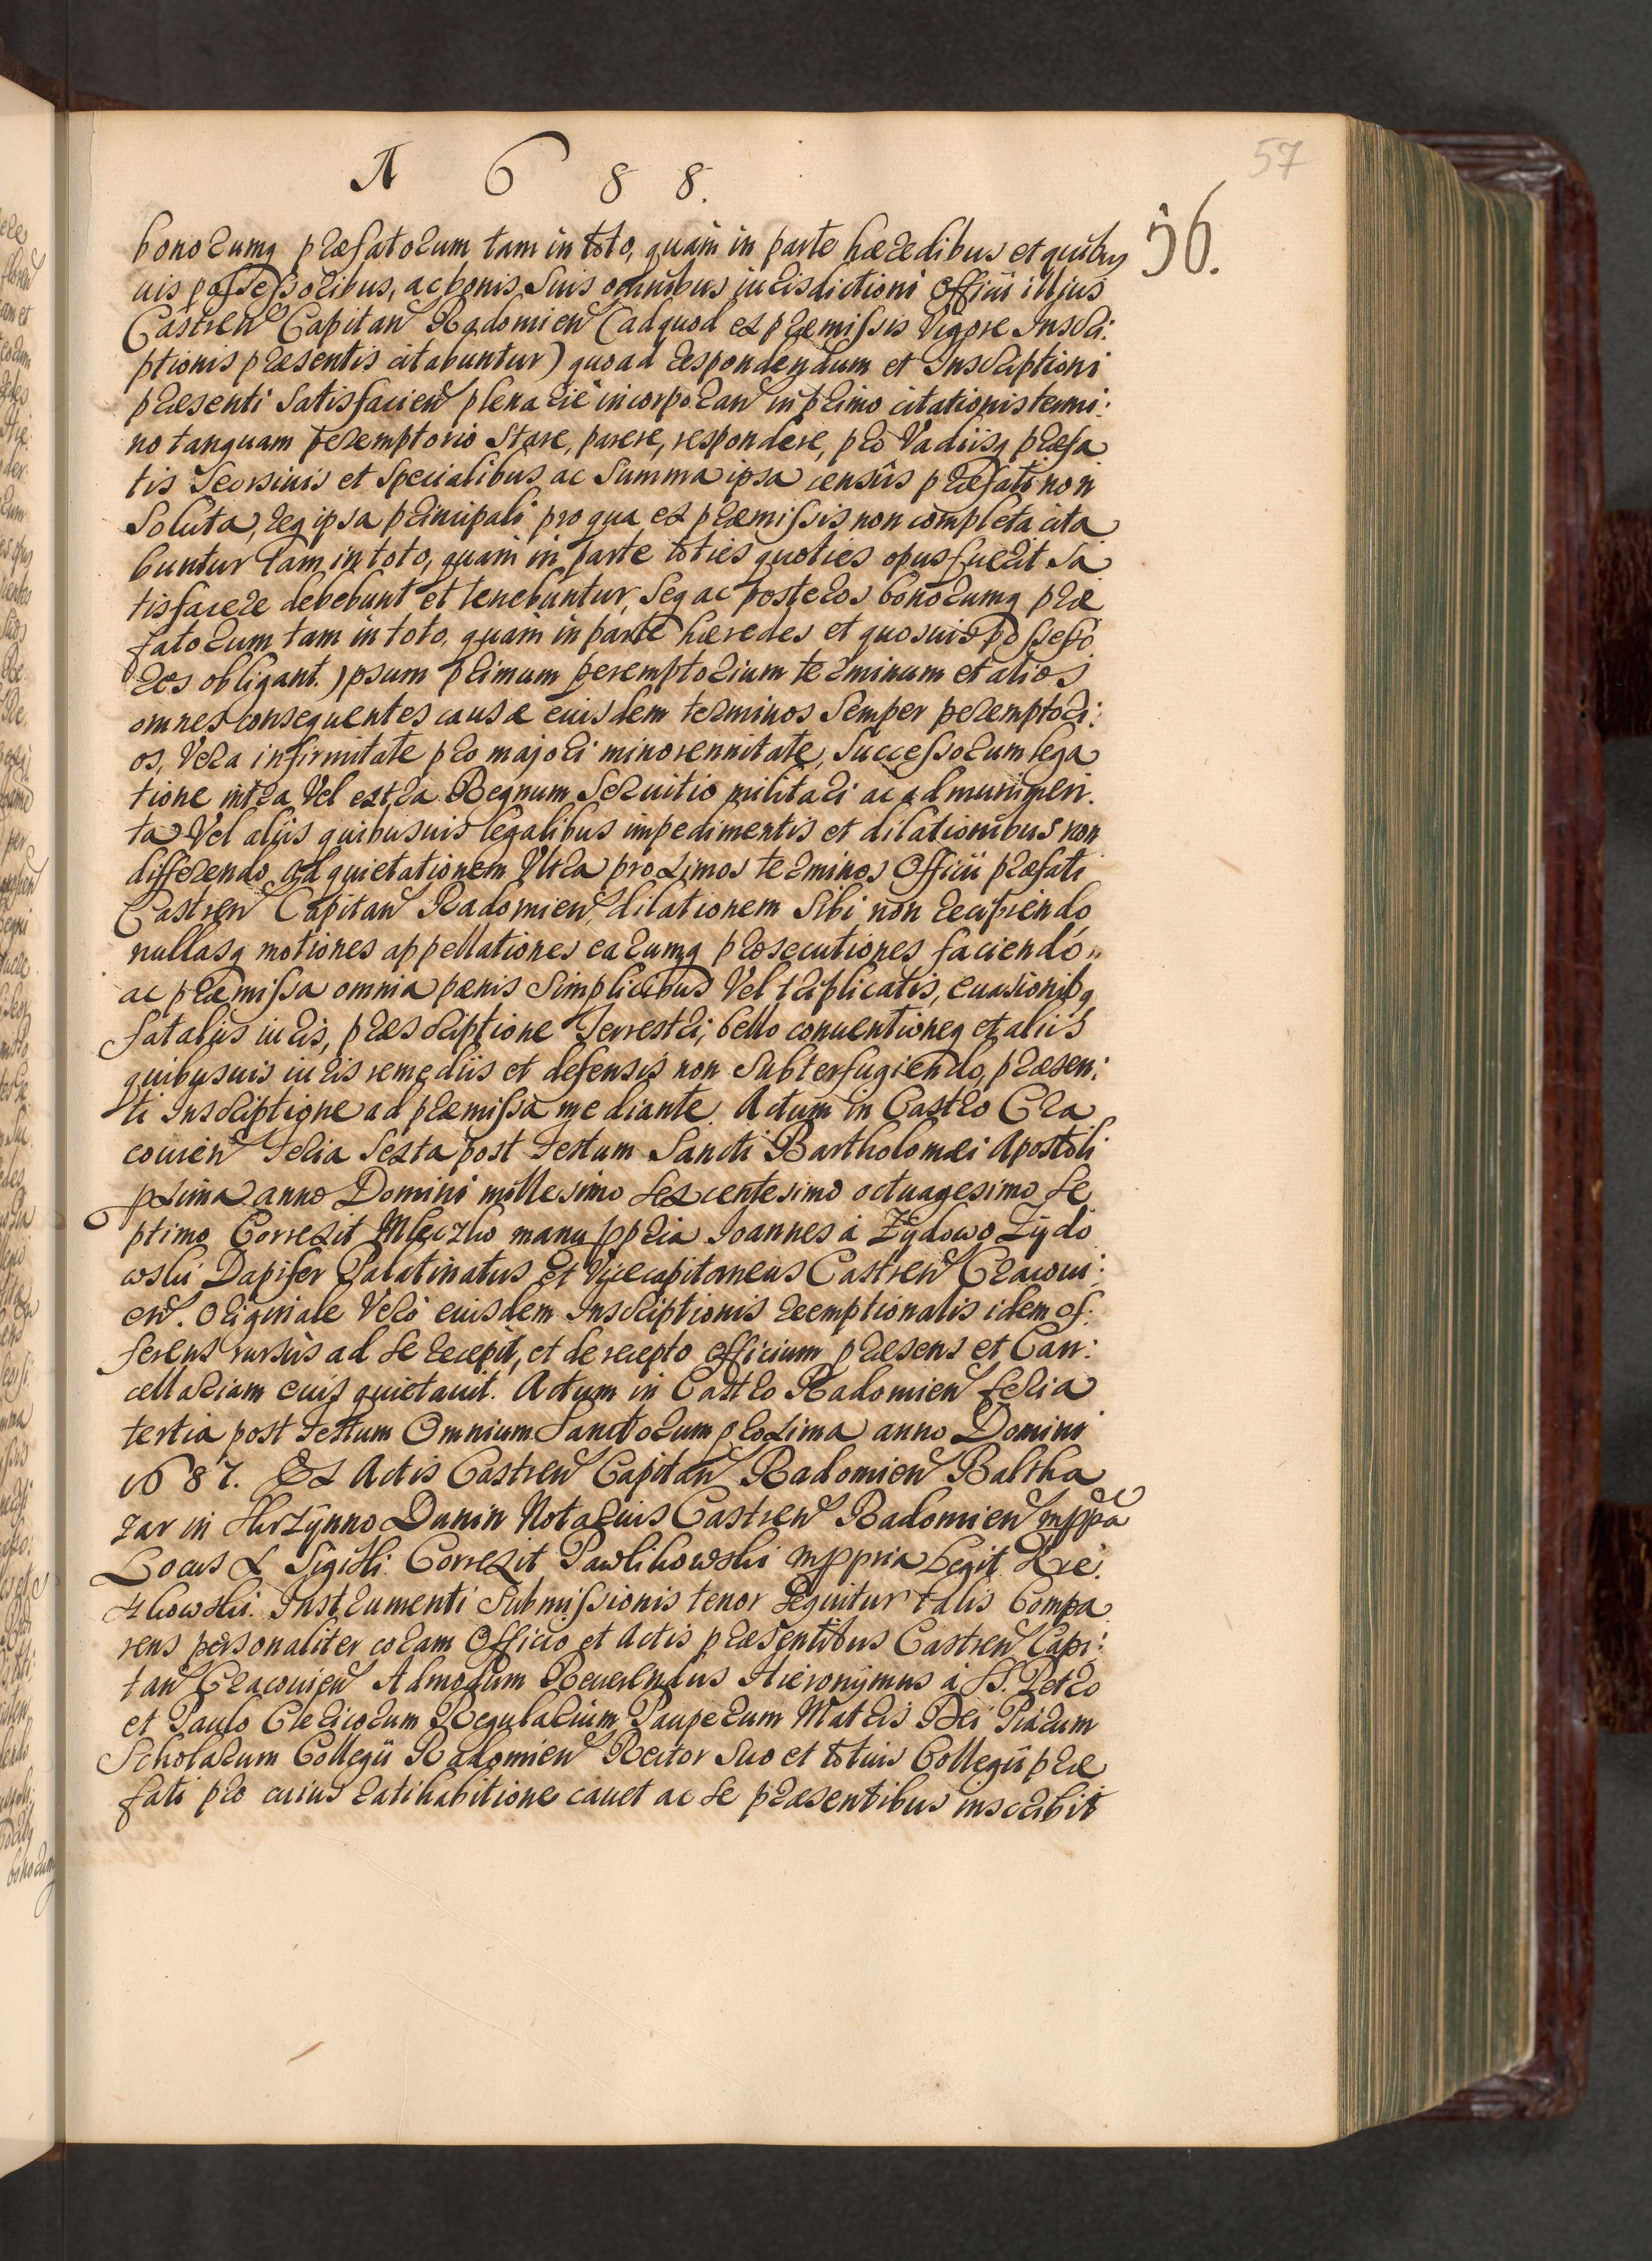 57
1 6 8 8.
56.
bonorumq præfatorum tam in toto, quam in parte hæredibus et quibus
uis possessoribus, ac bonis Suis omnibus iurisdictioni Officii illius
Castren Capitan Radomien (ad quod ex præmissis Vigore Inscri:
ptionis præsentis citabuntur) quo ad respondendum et Inscriptioni
præsenti Satisfacien plenarie incorporan in primo citationis termi:
no tanquam peremptorio Stare, parere, respondere, pro Vadiisq præfa
tis Seorsiuis et Specialibus ac Summa ipsa census præfati non
Soluta, req ipsa principali pro qua ex præmissis non completa cita
buntur tam in toto, quam in parte toties quoties opus fuerit Sa
tisfacere debebunt et tenebuntur, Seq ac posteros bonorumq præ
fatorum tam in toto, quam in parte hæredes et quosuis possesso
res obligant.) psum primum peremptorium terminum et alios
omnes consequentes causæ eiusdem terminos Semper peremptori:
os, Vera infirmitate pro majori minorennitate, Successorum lega
tione intra Vel extra Regnum Seruitio militari ac ad munimen.
ta Vel aliis quibusuis legalibus impedimentis et dilationibus non
differendo, ad quietationem Vltra proximos terminos Officii præfati
Castren Capitan Radomien dilationem Sibi non recipiendo
nullasq motiones appellationes earumq prosecutiones faciendo„
ac præmissa omnia pænis Simplicibus Vel triplicatis, euasionibq
fatalus iuris, præscriptione Terrestri, bello conuentioneq et aliis
quibusuis iuris remediis et defensis non Subterfugiendo, præsen:
ti Inscriptione ad præmissa mediante. Actum in Castro Cra
couien Feria Sexta post Festum Sancti Bartholomæi Apostoli
pxima anno Domini millesimo Sexcentesimo octuagesimo Se
ptimo Correxit Mleczko manu ppria Ioannes à Zydowo Zydo
wski Dapifer Palatinatus et Vicecapitaneus Castren Cracoui:
en. Originale Verò eiusdem Inscriptionis reemptionalis idem of:
ferens rursus ad Se recepit, et de recepto Officium præsens et Can:
cellariam eius quietauit. Actum in Castro Radomien feria
tertia post Festum Omnium Sanctorum proxima anno Domini
1687. Ex Actis Castren Capitan Radomien Baltha
zar in Skrzynno Dunin Notarius Castren Radomien mppa
Locus L Sigilli. Correxit Pawlikowski mppria Legit Kre
Instrumenti Submissionis tenor Sequitur talis Compa
rens personaliter coram Officio et Actis præsentibus Castren Capi:
tan Cracouien Admodum Reuerendus Hieronymus à SS. Petro
et Paulo Clericorum Regularium Pauperum Matris Dei Piarum
Scholarum Collegii Radomien Rector Suo et totius Collegii præ
fati pro cuius ratihabitione cauet ac Se præsentibus inscribit